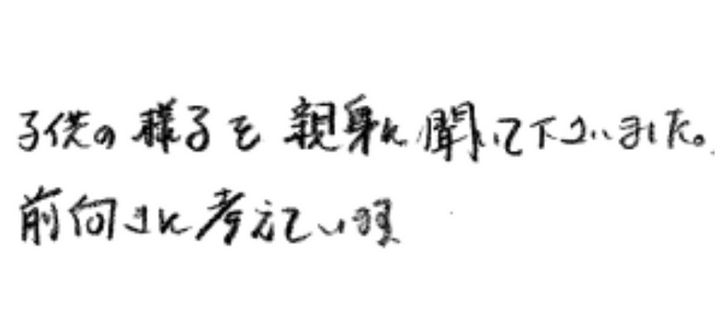 子供の様子を親身に聞いて下さいました。
前向きに考えています